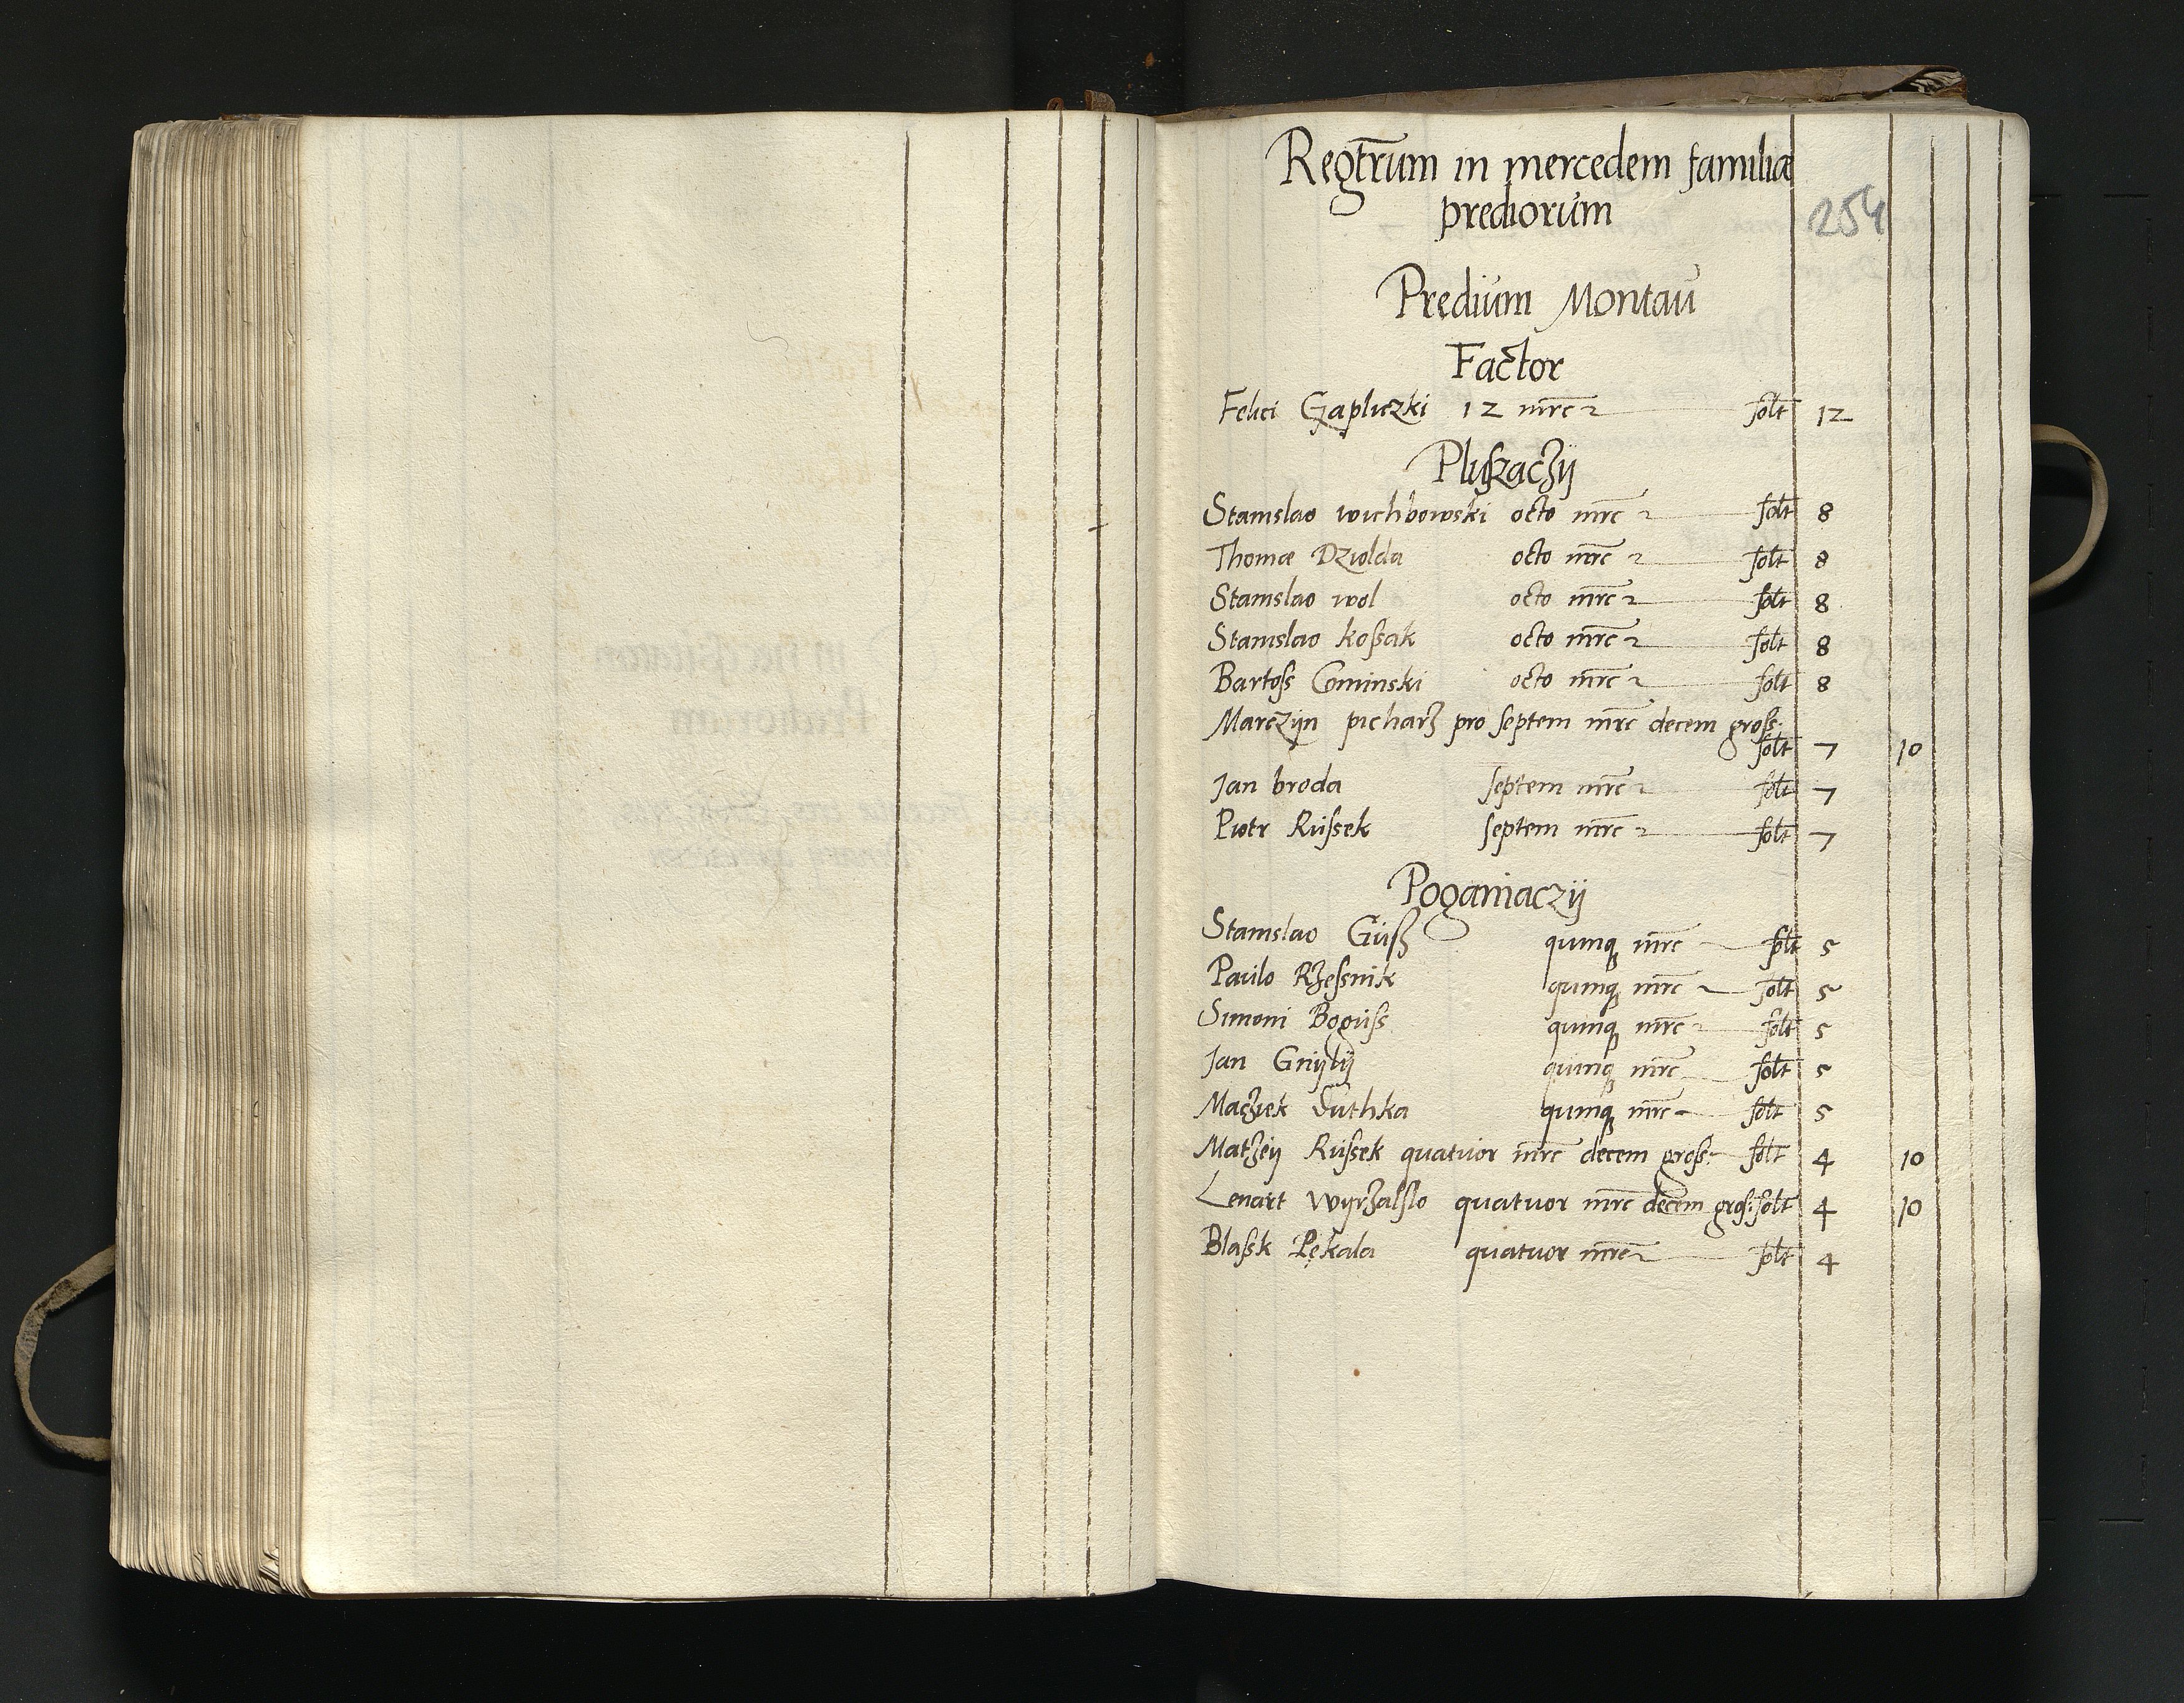 Regtrum in mercedem familiæ
prediorum
254
Predium Montau
Factor
Felici Czapliczki 12 mrc solt 12
Pluszaczÿ
Stanislao wichbowski octo mrc solt 8
Thomæ Dziolda octo mrc solt 8
Stanislao wol octo mrc solt 8
Stanislao koßak octo mrc solt 8
Bartoss Cominski octo mrc solt 8
Marczÿn picharz pro septem mrc decem gross:
solt 7 10
Jan broda septem mrc solt 7
Piotr Russek septem mrc solt 7
Poganiaczÿ
Stanislao Guß quinq mrc solt 5
Paulo Rzessnik quinq mrc solt 5
Simoni Boguss quinq mrc solt 5
Jan Gnÿlÿ quinq mrc solt 5
Macziek Duthka quinq mrc solt 5
Matzeÿ Russek quatuor mrc decem gross: solt 4 10
Lenart Wÿrzalslo quatuor mrc decem gros: solt 4 10
Blaßk Pękala quatuor mrc solt 4